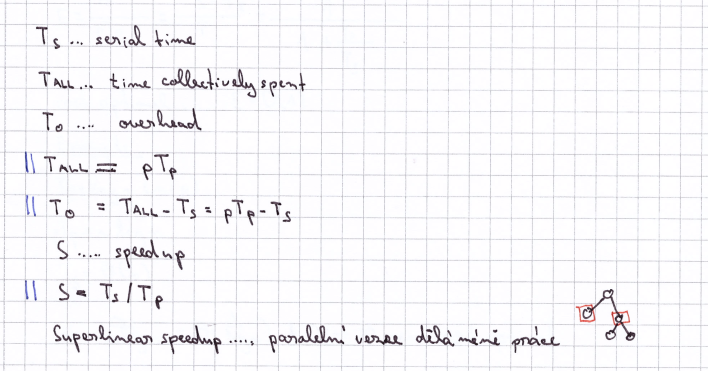 Ts ... serial time
TALL... time collectively spent
To .... overhead
|| TALL = pTp
|| To = TALL - Ts = pTp - Ts
S ..... speedup
|| S = Ts / Tp
Superlinear speedup ...., paralelní verze dělá méně práce